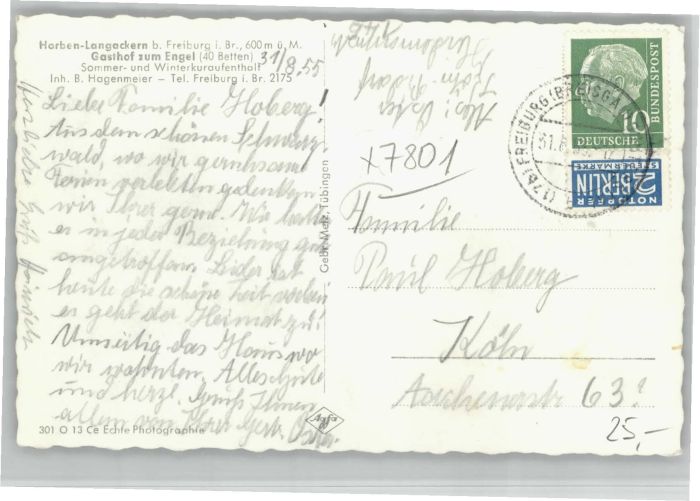 Horben-Langackern b. Freiburg i. Br., 600 m ü. M.
Gasthof zum Engel (40 Betten)
Sommer- und Winterkuraufenthalt
Inh. B. Hagenmeier – Tel. Freiburg i. Br. 2175
31/8,55
Liebe Familie Hoberg!
Aus dem schönen Schwarz-
wald, wo wir gemeinsam
Ferien verlebten gedenken
wir Ihrer gern. Wir hatten
es in jeder Beziehung gut
angetroffen. Leider ist
heute die schöne Zeit vorbei
es geht der Heimat zu!
Umseitig das Haus wo
wir wohnten. Alles Gute
und herzl. Grüße Ihnen
allen von Ihrer
301 O 13 Ce Echte Photographie
Gebr. Metz, Tübingen
Agfa
Abs:
x7801
FREIBURG (BREISGAU)
(17b)
31.8.
10
DEUTSCHE
BUNDESPOST
NOTOPFER
2 BERLIN
STEUERMARKE
Familie
Paul Hoberg
Köln
Aachenerstr 63?
25,-